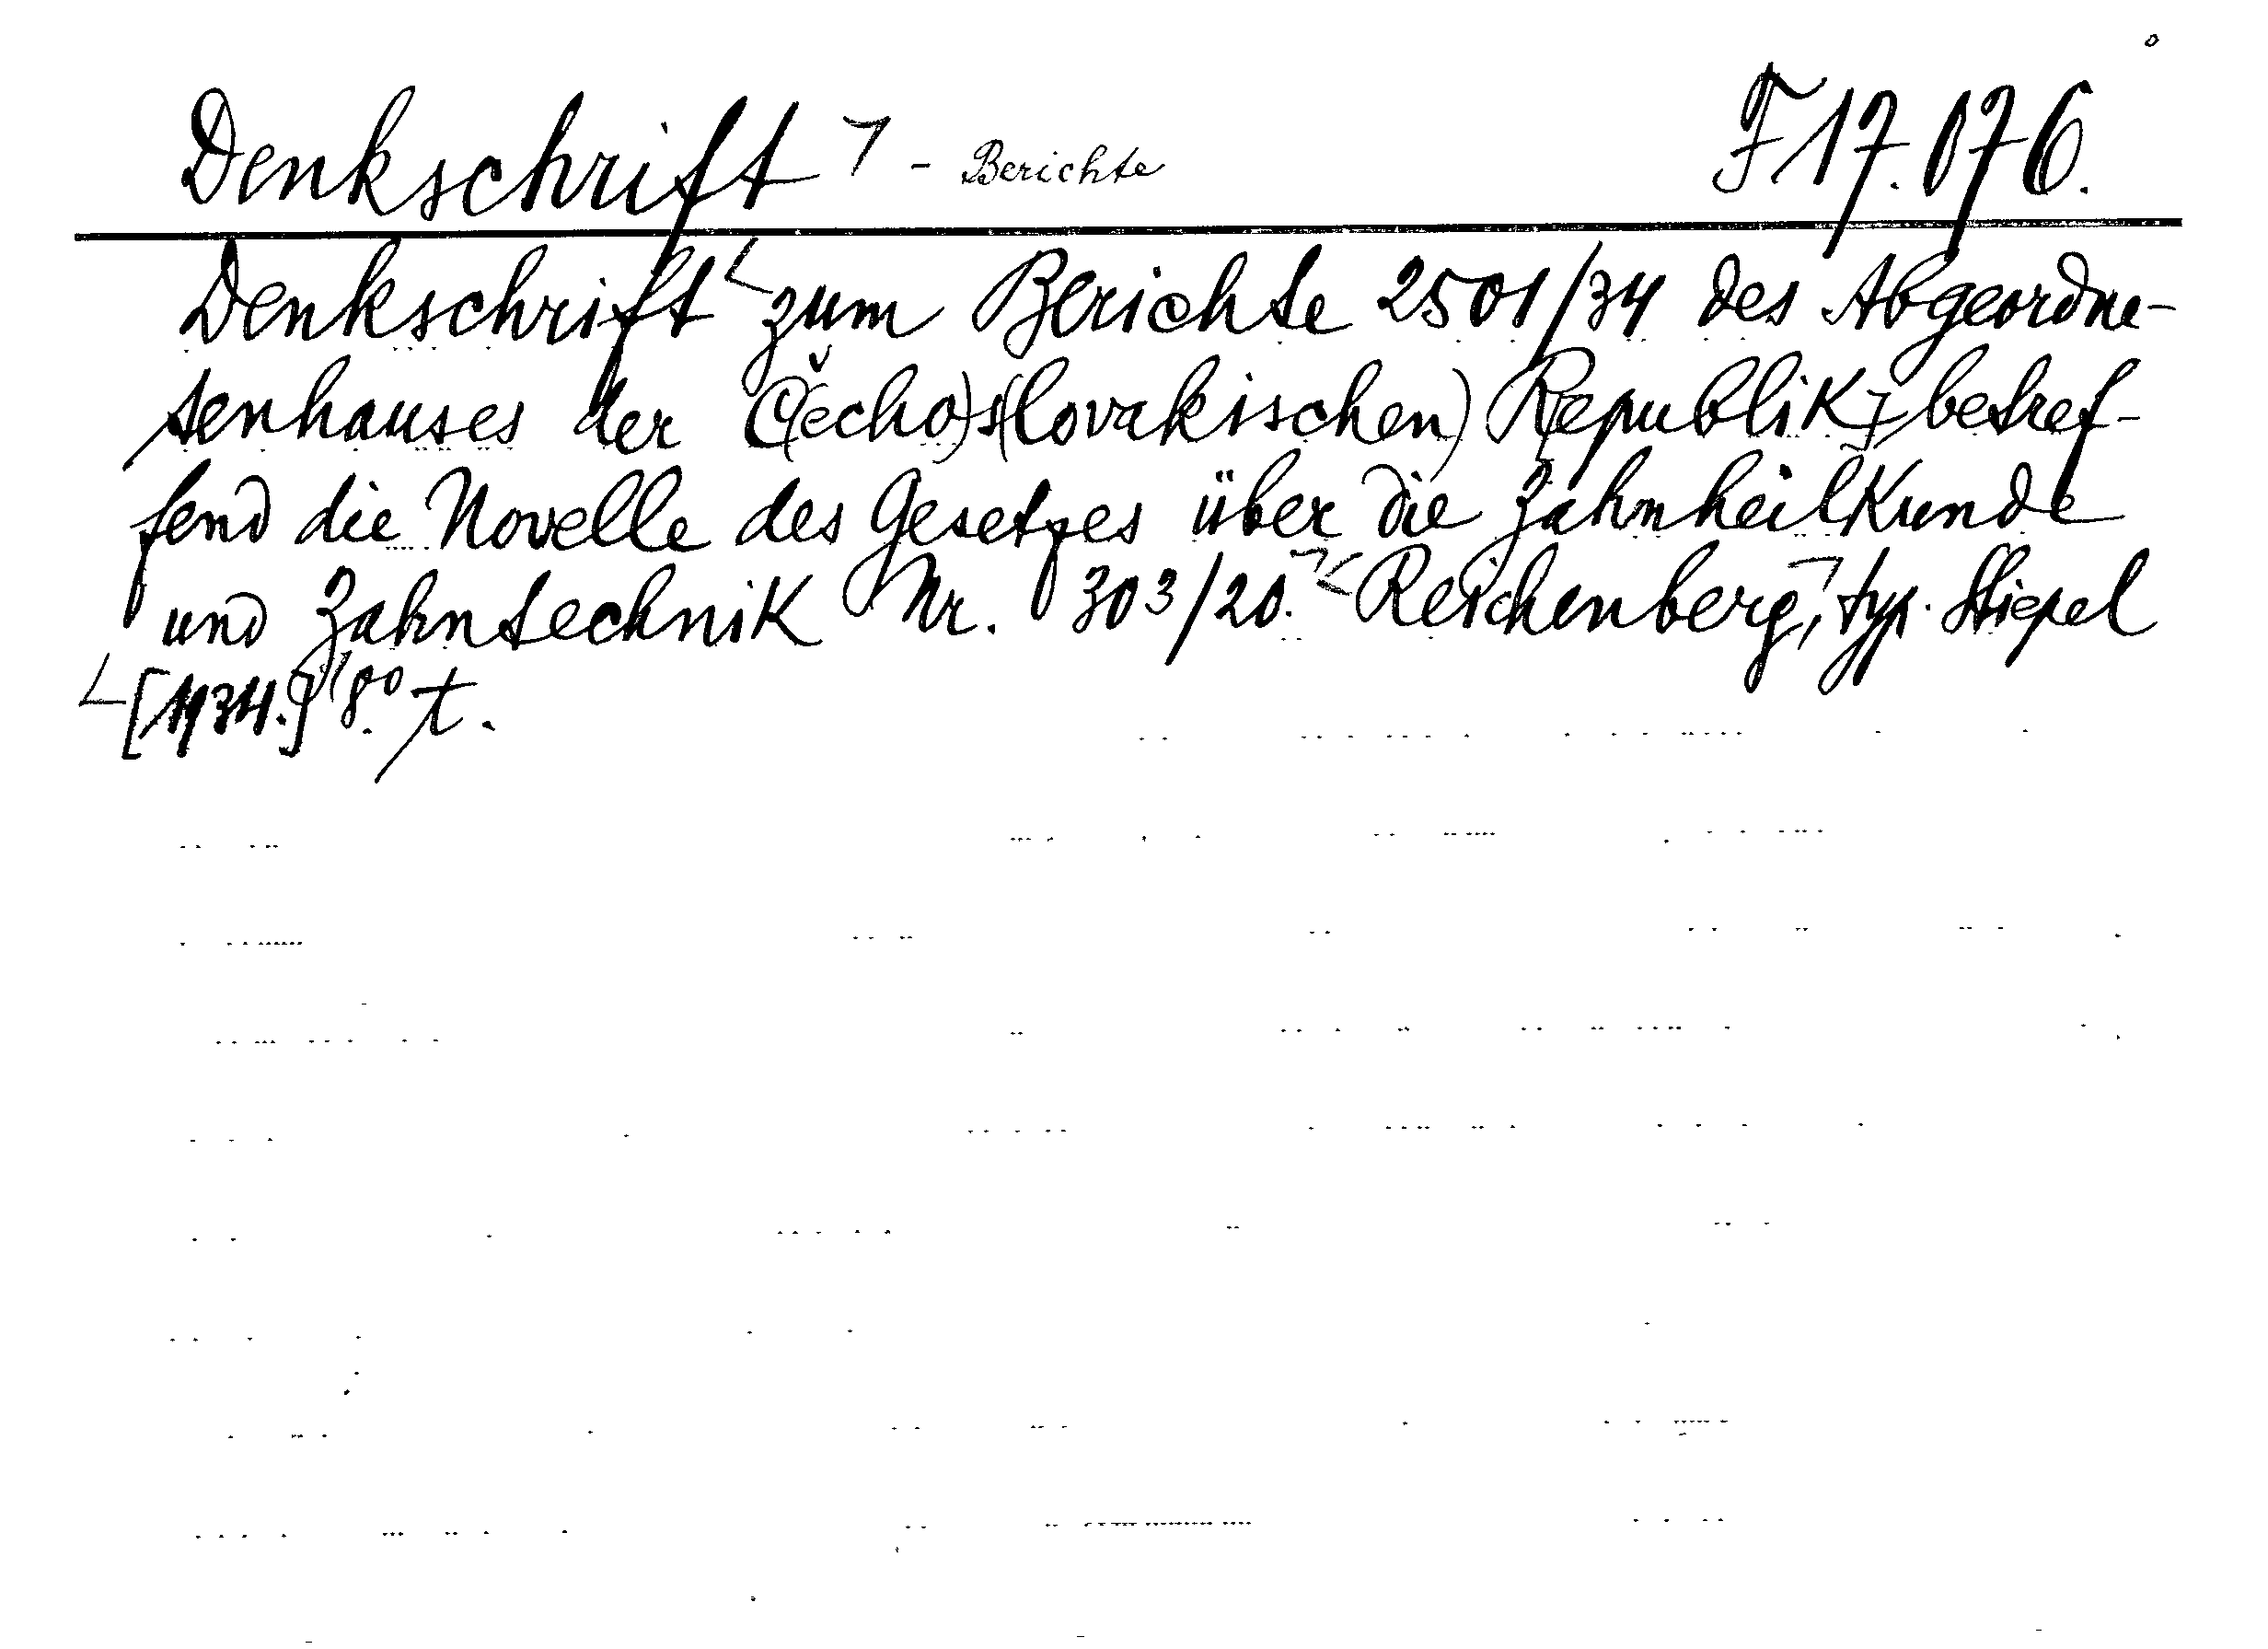 Denkschrift - Berichte F 17.076.
Denkschrift zum Berichte 2501/34 des Abgeordne-
tenhauses der Č(echo)s(lovakischen) R(epublik) betref-
fend die Novelle des Gesetzes über die Zahnheilkunde
und Zahntechnik Nr. 303/20. Reichenberg, typ. Stiepel
[1934.] 8.° t.